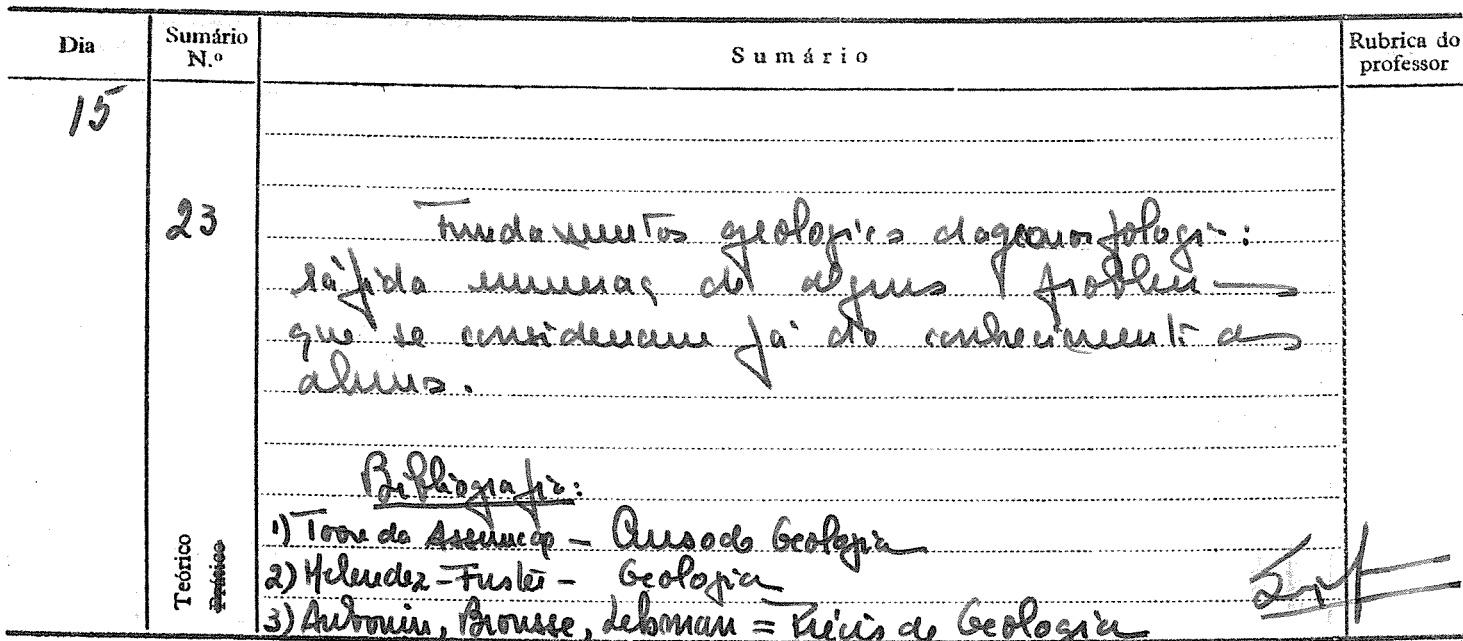 Dia Sumário N.º Sumário Rubrica do professor
15
23 Fundamentos geologicos da geomorfologia:
rápida enumeraç de alguns problemas
que se consideram já do conhecimento dos
alunos.
Bibliografia:
1) Torre da Assunção - Curso de Geologia
2) Melendez-Fuster - Geologia
3) Aubouin, Brousse, Lehman = Précis de Geologia
Teórico
Prático